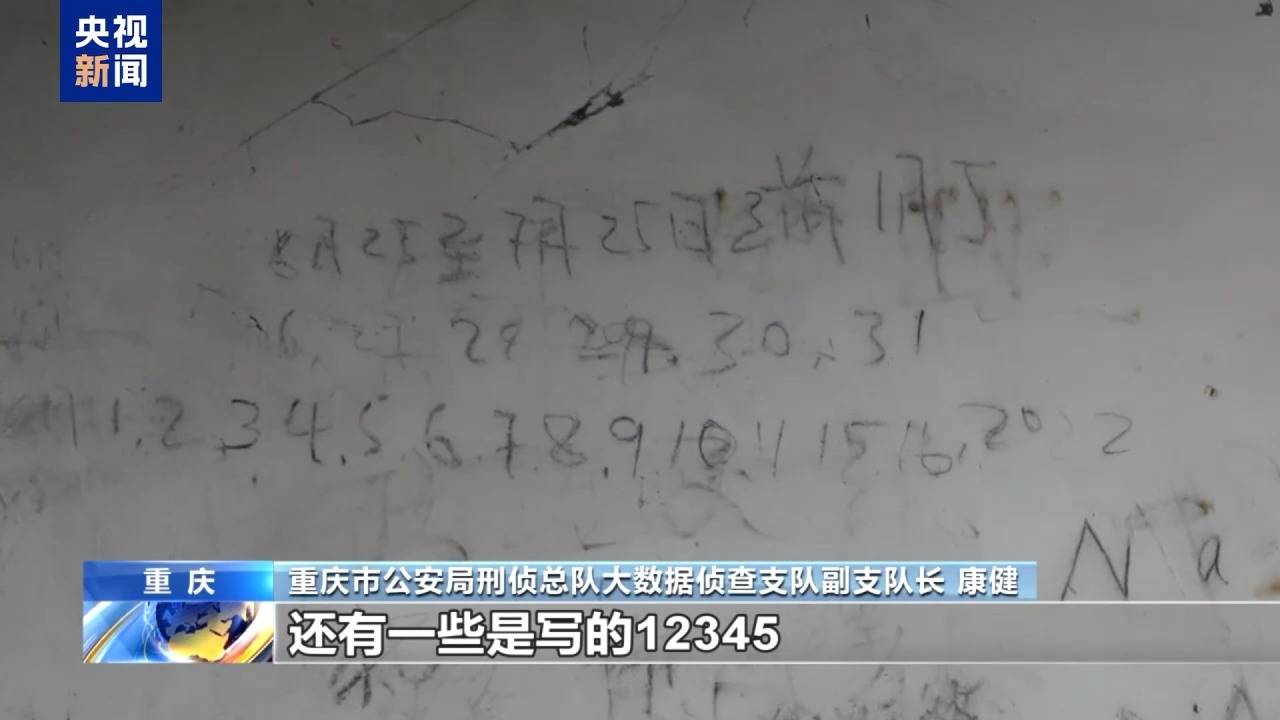 央视
新闻
8月25至7月25日 前1月
6. 27 29 30、31
1 1.2.3.4.5.6.7.8.9.10.11 15.16.20 2
Na
重庆
重庆市公安局刑侦总队大数据侦查支队副支队长 康健
还有一些是写的12345